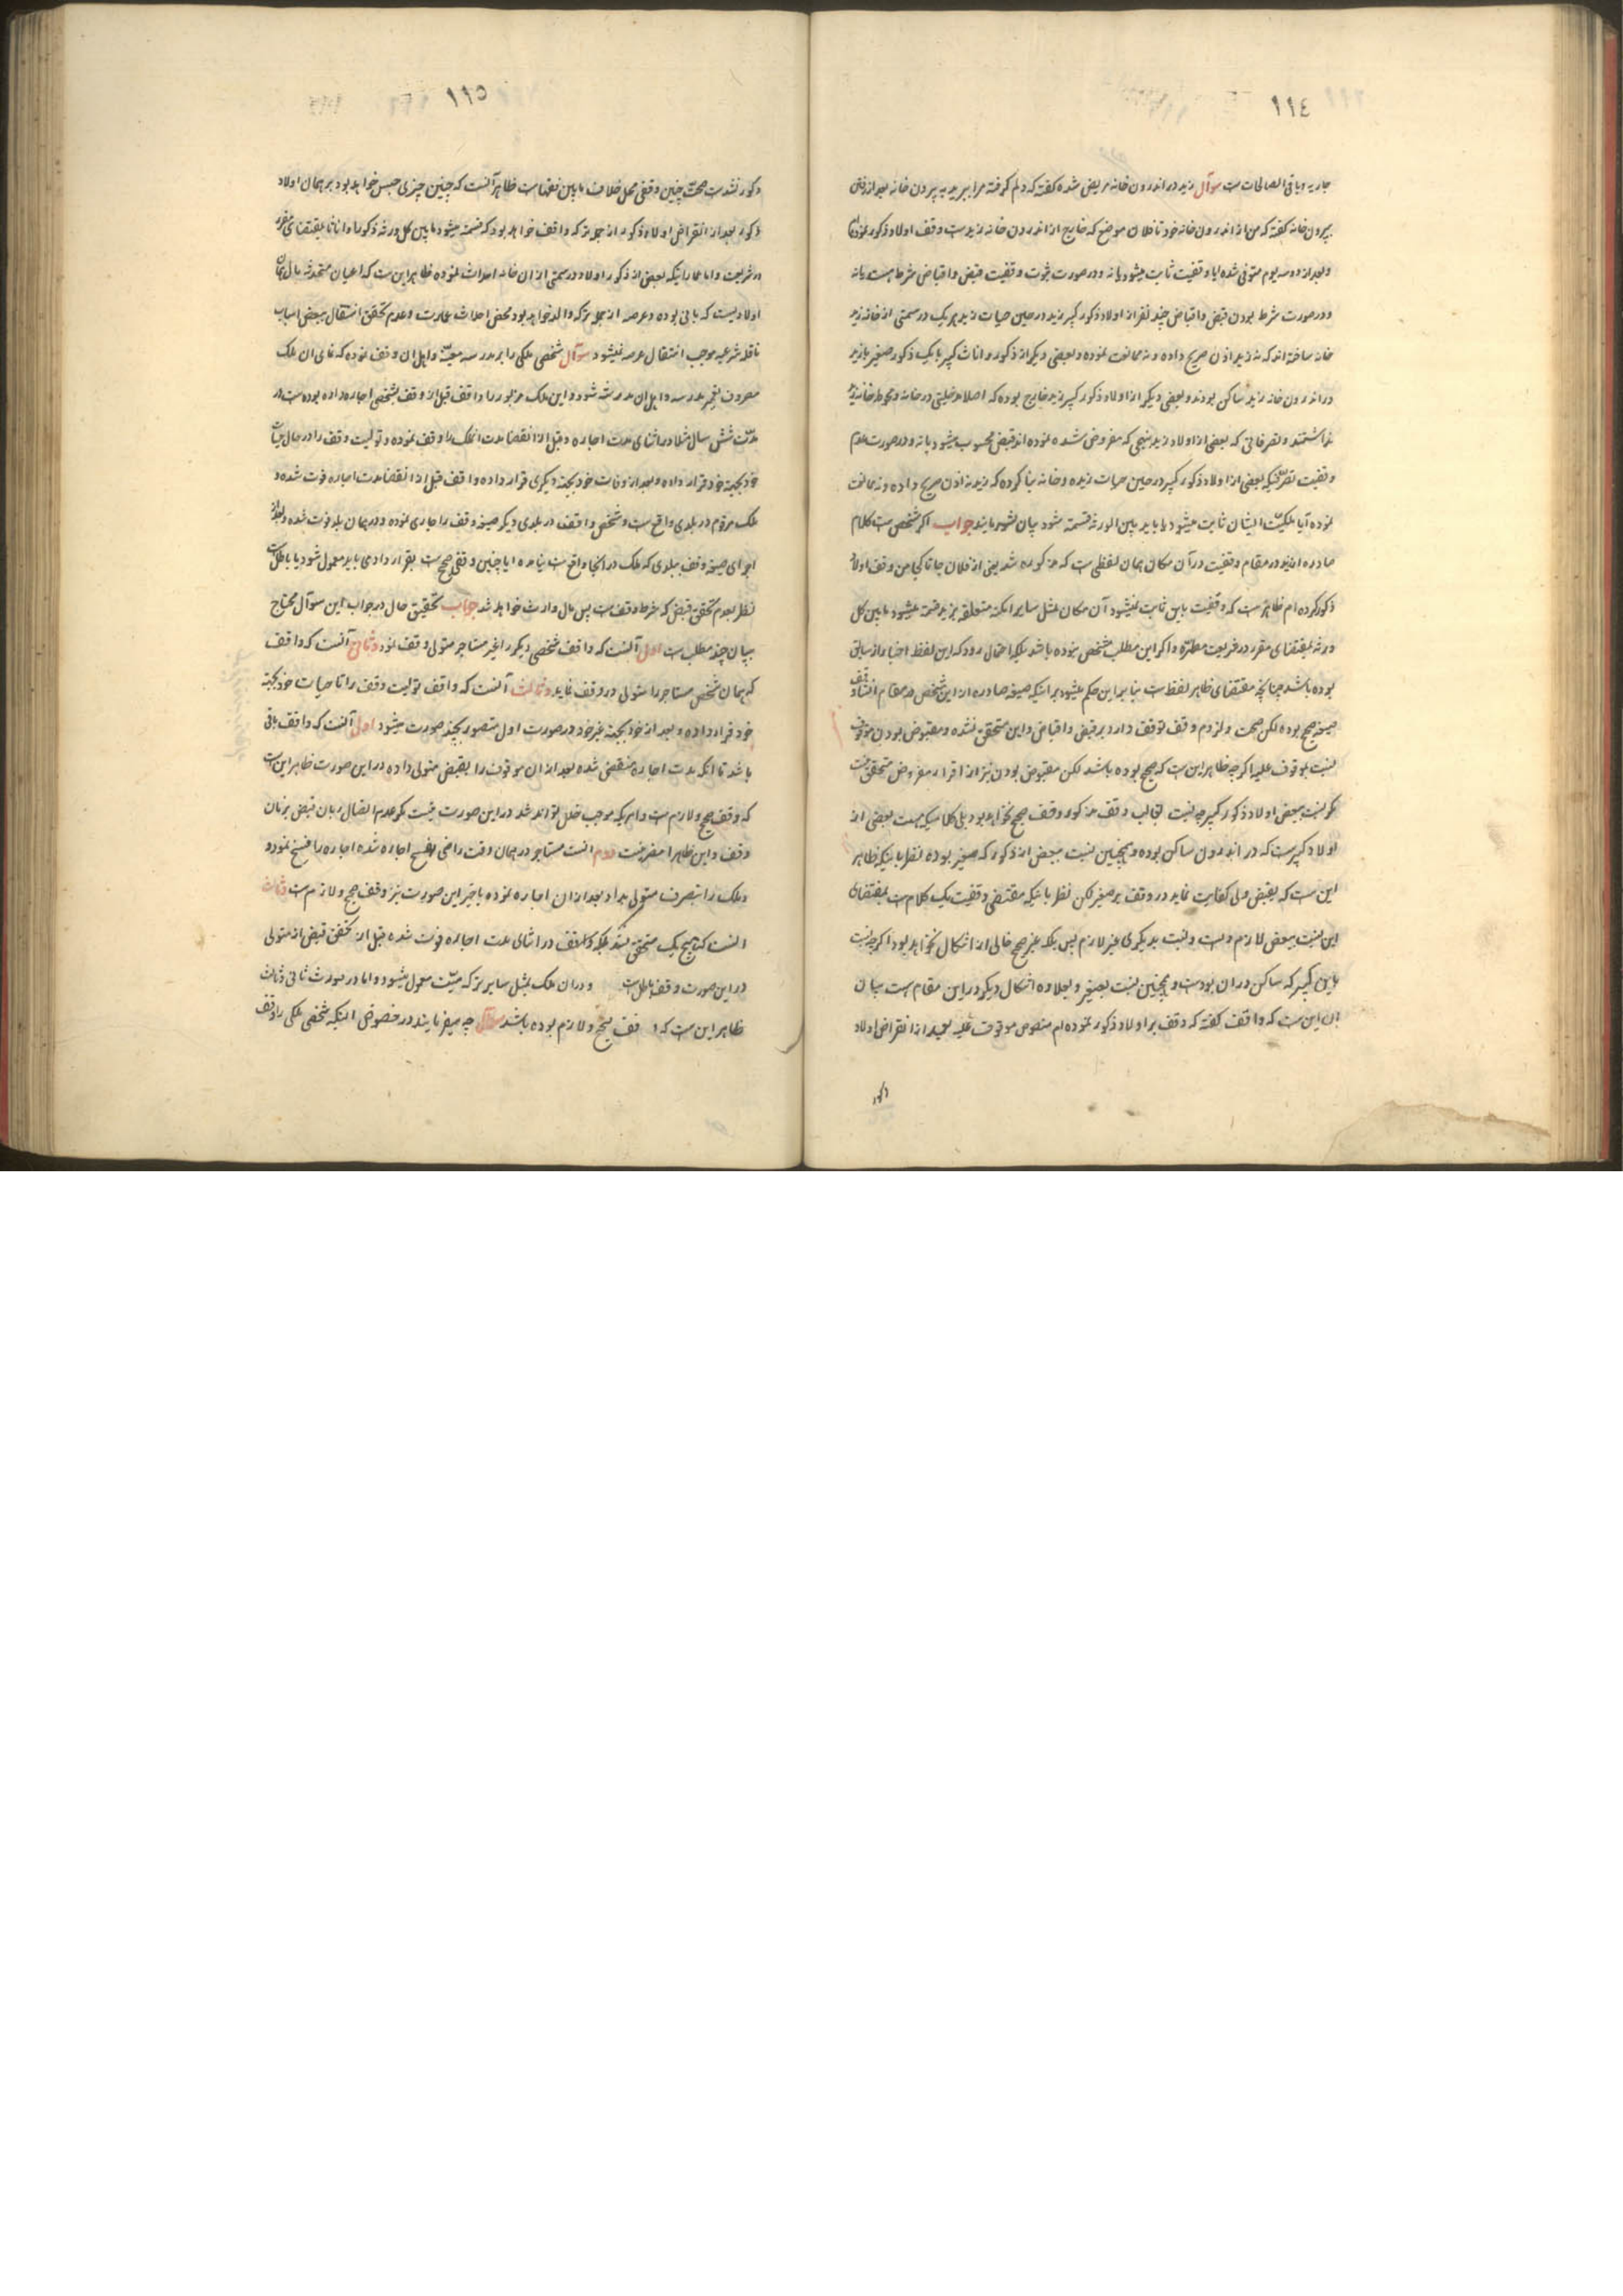 ١١٤
جاریه و باقی الصالحات است سوآل زید در اندرون خانه مریض شده گفته که دلم گرفته مرا ببرید به بیرون خانه بعد از رفتن
بیرون خانه گفته که من از اندرون خانه خود تا فلان موضع که خارج از اندرون خانه زیدست وقف اولاد ذکور نموده‌ام
و بعد از دو سه یوم متوفی شده ایا وقفیت ثابت میشود یا نه و در صورت ثبوت وقفیت قبض و اقباض شرط هست یا نه
و در صورت شرط بودن قبض و اقباض چند نفر از اولاد ذکور کبیر زید در حین حیات زید هر یک در سمتی از خانه زید
خانه ساخته‌اند که نه زید اذن صریح داده و نه ممانعت نموده و بعضی دیگر از ذکور و اناث کبیر با یک ذکور صغیر با زید
در اندرون خانه زید ساکن بودند و بعضی دیگر از اولاد ذکور کبیر زید خارج بوده که اصلا مدخلیتی در خانه و محوطه خانه زید
نداشتند و تصرفاتی که بعضی از اولاد زید بنهجی که مفروض شده نموده‌اند قبض محسوب میشود یا نه و در صورت عدم
وقفیت تصرفیکه بعضی از اولاد ذکور کبیر در حین حیات زید و خانه بنا کرده که زید نه اذن صریح داده و نه ممانعت
نموده آیا ملکیت ایشان ثابت میشود یا باید بین الورثه قسمه شود بیان فرمایند جواب اگر مشخص است کلام
صادره از زید در مقام وقفیت در آن مکان همان لفظی است که مذکور شد یعنی از فلان جا تا کجا من وقف اولاد
ذکور کرده‌ام ظاهر است که وقفیت باین ثابت نمیشود آن مکان مثل سایر امکنه متعلقه بزید قسمة میشود مابین کل
ورثه بمقتضای مقرر در شریعت مطهره و اگر این مطلب مشخص نبوده باشد بلکه احتمال رود که این لفظ اخبار از سابق
بوده باشد چنانچه مقتضای ظاهر لفظ است بنابراین حکم میشود بر اینکه صیغه صادره از این شخص در مقام انشاء وقف
صیغه صحیح بوده لکن صحت و لزوم وقف توقف دارد بر قبض و اقباض و این متحقق نشده و مقبوض بودن موقوف
نسبت بموقوف علیه اگر چه ظاهر این است که صحیح بوده باشد لکن مقبوض بودن نیز از اقرار مفروض متحقق نیست
مگر نسبت ببعض اولاد ذکور کبیر چه نسبت بغالب وقف مذکور وقف صحیح نخواهد بود بلی کلامیکه هست بعضی از
اولاد کبیرست که در اندرون ساکن بوده و همچنین نسبت ببعض از ذکور که صغیر بوده نظر باینکه ظاهر
این است که بقبض ولی کفایت نماید در وقف بر صغیر لکن نظر باینکه مقتضی وقفیت یک کلام است بمقتضای
این نسبت ببعض لازم و نسبت بدیگری غیر لازم پس بلکه غیر صحیح خالی از اشکال نخواهد بود اگر چه نسبت
باین کبیر که ساکن در ان بودست و همچنین نسبت بصغیر و بعلاوه اشکال دیگر در این مقام هست بیان
ان این است که واقف گفته که وقف بر اولاد ذکور نموده‌ام منصوص موقوف علیه بعد از انقراض اولاد
ذکور
١١٥
ذکور نشدست صحت چنین وقفی محل خلاف مابین فقهاست ظاهر آنست که چنین چیزی حبس خواهد بود بر همان اولاد
ذکور بعد از انقراض اولاد ذکور از جمله ترکه واقف خواهد بود که قسمة میشود مابین کل ورثه ذکورا و اناثا بمقتضای مقرر
در شریعت و اما عماراتیکه بعض از ذکور اولاد در سمتی از ان خانه احداث نموده ظاهر این است که اعیان متحدثه مال همان
اولادیست که بانی بوده و عرصه از جمله ترکه والد خواهد بود محض احداث عمارت و عدم تحقق انتقال ببعض اسباب
ناقله شرعیه موجب انتقال عرصه نمیشود سوآل شخصی ملکی را بر مدرسه معینه و اهل ان وقف نموده که نمای ان ملک
مصروف تعمیر مدرسه و اهل ان مدرسه شود و این ملک مزبور را واقف قبل از وقف بشخصی اجاره داده بوده است در
مدت شش سال مثلا در اثنای مدت اجاره و قبل از انقضا مدت انملک را وقف نموده و تولیت وقف را در حال حیات
خود بجهة خود قرار داده و بعد از وفات خود بجهة دیگری قرار داده و واقف قبل از انقضا مدت اجاره فوت شده و
ملک مرقوم در بلدی واقع است و شخص واقف در بلدی دیگر صیغه وقف را جاری نموده و در همان بلد فوت شده و بعد از
اجرای صیغه وقف ببلدی که ملک در انجا واقع است نیامده ایا چنین وقفی صحیح است بقرار دادی باید معمول شود یا باطل است
نظر بعدم تحقق قبض که شرط وقف است پس مال وارث خواهد شد جواب تحقیق حال در جواب این سوآل محتاج
ببیان چند مطلب است اول آنست که واقف شخصی دیگر را غیر مستاجر متولی وقف نمود و ثانی آنست که واقف
که همان شخص مستاجر را متولی در وقف نماید و ثالث آنست که واقف تولیت وقف را تا حیات خود بجهة
خود قرار داده و بعد از خود بجهة غیر خود در صورت اول متصور بچند صورت میشود اول آنست که واقف باقی
باشد تا انکه مدت اجاره منقضی شده بعد از ان موقوف را بقبض متولی داده در این صورت ظاهر این است
که وقف صحیح و لازم است و امریکه موجب خلل تواند شد در این صورت نیست مگر عدم اتصال زمان قبض بزمان
وقف و این ظاهرا مضر نیست دوم انست مستاجر در همان وقت راضی بفسخ اجاره شده اجاره را فسخ نمود و
و ملک را بتصرف متولی بداد بعد از ان اجاره نموده یا خیر این صورت نیز وقف صحیح و لازم است و ثالث
انست که هیچ یک متحقق نشد بلکه واقف در اثنای مدت اجاره فوت شده قبل از تحقق قبض از متولی
در این صورت وقف باطل است و در ان ملک بمثل سایر ترکه میت معمول میشود و اما در صورت ثانی و ثالث
ظاهر این است که وقف صحیح و لازم بوده باشد سوآل چه میفرمایند در خصوص اینکه شخصی ملکی را وقف